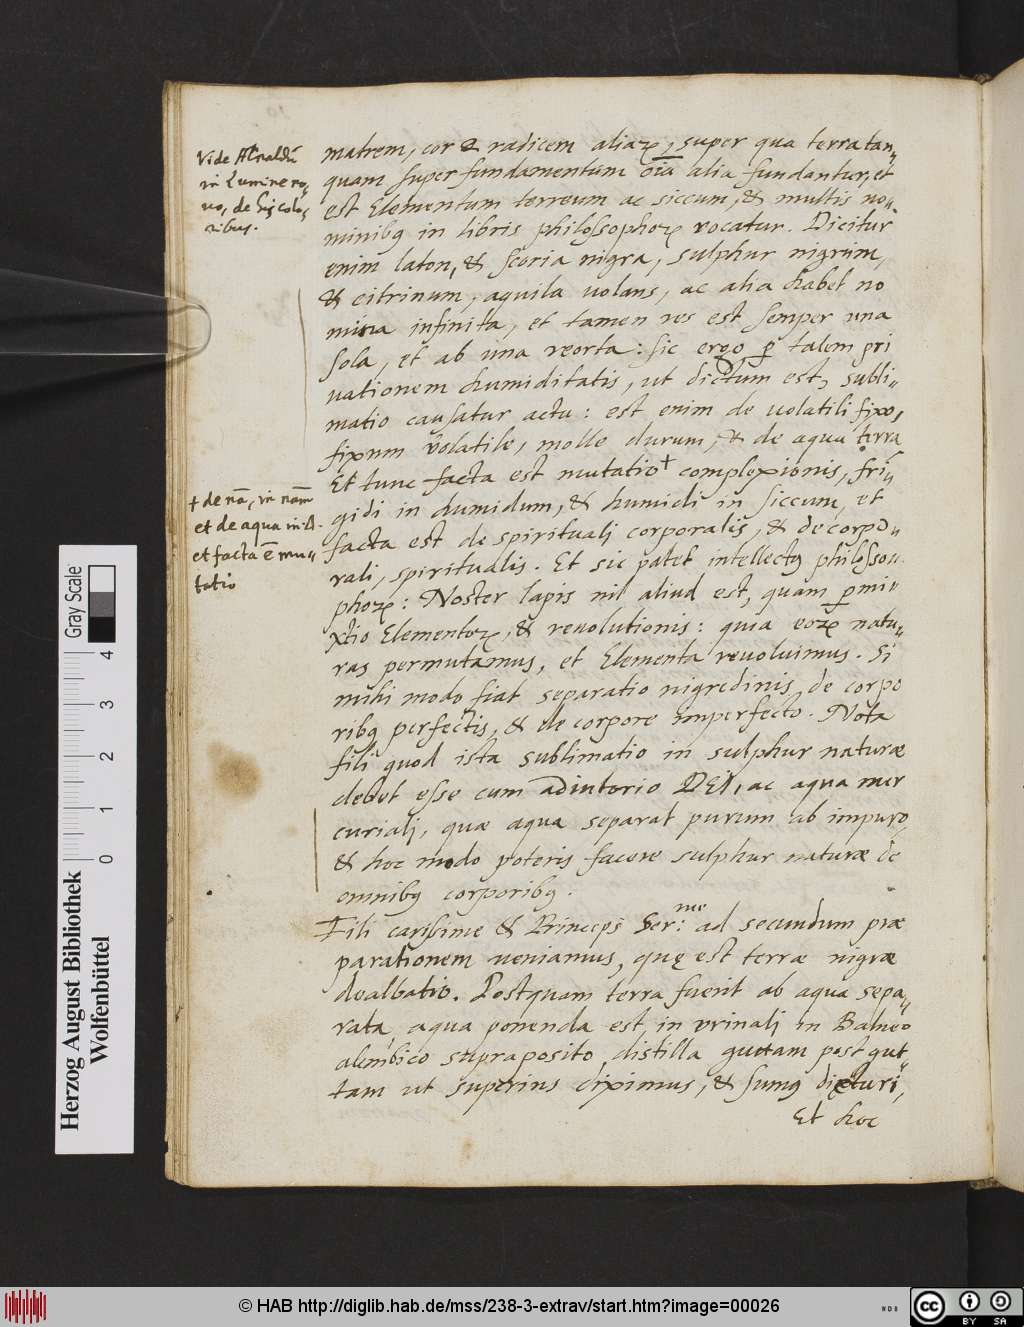 matrem, cor & radicem aliaꝝ, super qua terra tan„
quam super fundamentum oīa alia fundantur, et
est Elementum terreum ac siccum, & multis no„
minibꝰ in libris philosophoꝝ vocatur. Dicitur
enim laton, & scoria nigra, sulphur nigrum,
& citrinum, aquila volans, ac alia habet no
mina infinita, et tamen res est semper una
sola, et ab una reorta: sic ergo ꝑ talem pri
uationem humiditatis, ut dictum est, subli„
matio causatur actu: est enim de uolatili fixo,
fixum volatile, molle durum, & de aqua terra
Et tunc facta est mutatio† complexionis, fri„
gidi in humidum, & humidi in siccum, et
facta est de spirituali corporalis, & de corpo„
rali, spiritualis. Et sic patet intellectꝰ philoso„
phoꝝ: Noster lapis nil aliud est, quam ꝑmi„
xtio Elementoꝝ, & reuolutionis: quia eoꝝ natu„
ras permutamus, et Elementa reuoluimus. Si
mihi modo fiat separatio nigredinis, de corpo
ribꝰ perfectis, & de corpore imperfecto. Nota
fili quod ista sublimatio in sulphur naturæ
debet esse cum adiutorio DEI, ac aqua mer
curiali, quæ aqua separat purum ab impuro,
& hoc modo poteris facere sulphur naturæ de
omnibꝰ corporibꝰ.
Fili carissime & Princeps Ser:me ad secundum præ
parationem ueniamus, quę est terræ nigræ
dealbatio. Postquam terra fuerit ab aqua sepa„
rata, aqua ponenda est, in vrinali in Balneo
alembico supraposito, distilla guttam post gut„
tam ut superius diximus, & sumꝰ dicturi,
Et hoc
Vide
in Lumine no„
uo, de his colo„
ribus.
† de nā, in nām
et de aqua in
et facta ē mu„
tatio
Herzog August Bibliothek
Wolfenbüttel
Gray Scale
0 1 2 3 4
© HAB http://diglib.hab.de/mss/238-3-extrav/start.htm?image=00026
cc BY SA